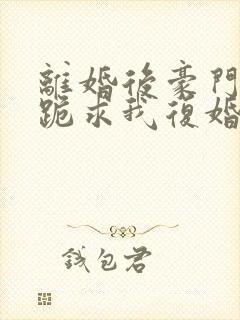 離婚後豪門
跪求我復婚
錢包君